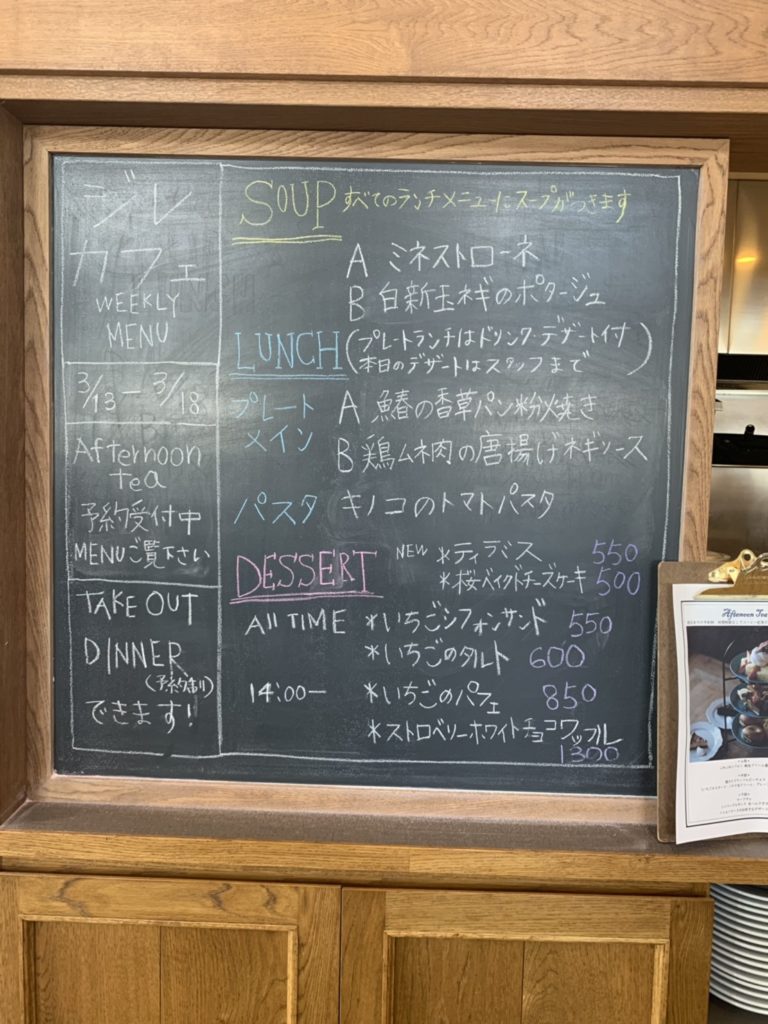 ジレ
カフェ
WEEKLY
MENU
3/13 - 3/18
Afternoon
tea
予約受付中
MENUご覧下さい
TAKE OUT
DINNER
できます!
SOUP すべてのランチメニューにスープがつきます
A ミネストローネ
B 白新玉ネギのポタージュ
LUNCH (プレートランチはドリンク・デザート付
本日のデザートはスタッフまで)
プレート
メイン
A 鰆の香草パン粉焼き
B 鶏ムネ肉の唐揚げネギソース
パスタ キノコのトマトパスタ
DESSERT NEW *ティラミス 550
*桜ベイクドチーズケーキ 500
All TIME *いちごシフォンサンド 550
*いちごのタルト 600
14:00- *いちごのパフェ 850
*ストロベリーホワイトチョコワッフル
1300
Afternoon Tea